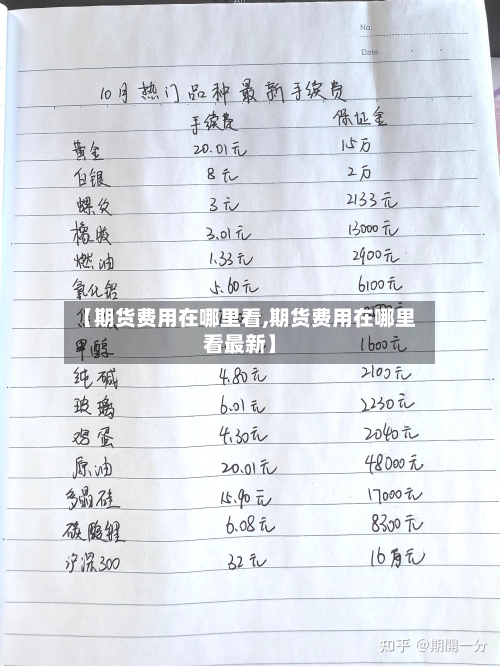 No.
Date
10月热门品种最新手续费
手续费 保证金
黄金 20.01元 15万
白银 8元 2万
螺纹 3元 2133元
橡胶 3.01元 13000元
燃油 1.33元 2900元
氧化铝 5.60元 6100元
【期货费用在哪里看,期货费用在哪里
看最新】
甲醇 1600元
纯碱 4.80元 2100元
玻璃 6.01元 2230元
鸡蛋 4.30元 2040元
原油 20.01元 48000元
多晶硅 15.90元 17000元
碳酸锂 6.08元 8300元
沪深300 32元 16万元
知乎 @期開一分